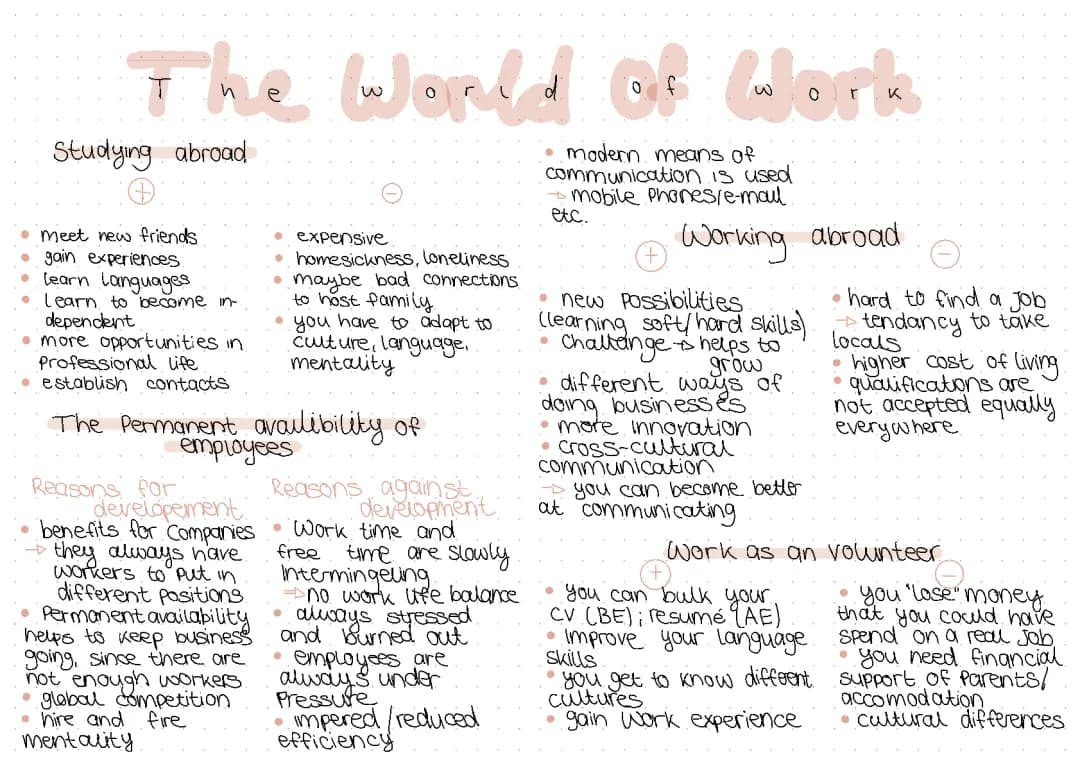 The World of Work
Studying abroad
+
meet new friends
gain experiences
learn languages
learn to become in-
dependent
more opportunities in
professional life
establish contacts
-
expensive
homesickness, loneliness
maybe bad connections
to host family
you have to adapt to
culture, language,
mentality
The Permanent availibility of
employees
Reasons for
developement
benefits for companies
→ they always have
workers to put in
different positions
Permanent availability
helps to keep business
going, since there are
not enough workers
global competition
hire and fire
mentality
Reasons against
development
Work time and
free time are slowly
intermingeling
⇒ no work life balance
always stressed
and burned out
employees are
always under
Pressure
impered/reduced
efficiency
modern means of
communication is used
→ mobile phones/e-mail
etc.
Working abroad
+
new possibilities
(learning soft/hard skills)
challange → helps to
grow
different ways of
doing businesses
more innovation
cross-cultural
communication
→ you can become better
at communicating
-
hard to find a job
→ tendancy to take
locals
higher cost of living
qualifications are
not accepted equally
everywhere
Work as an volunteer
+
you can bulk your
CV (BE); resumé (AE)
improve your language
skills
you get to know different
cultures
gain work experience
-
you "lose" money
that you could have
spend on a real job
you need financial
support of parents/
accomodation
cultural differences